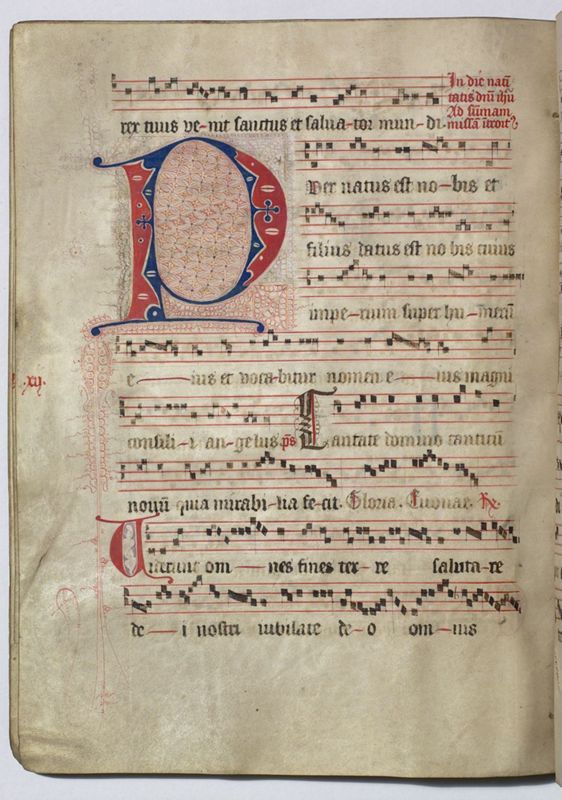 In die natī
tatis dnī ihū
Ad sūmam
missā
rex tuus ve-nit sanctus et salua-tor mun-di.
Puer natus est no-bis et
filius datus est no bis cuius
impe-rium super hu-merū
e-ius et voca-bitur nomen e-ius magni
.xij.
consili-i an-gelus. ps Cantate domino canticū
nouū quia mirabi-lia fe-cit. Gloria. Euouae.
Uiderunt om-nes fines ter-re saluta-re
de-i nostri iubilate de-o om-nis